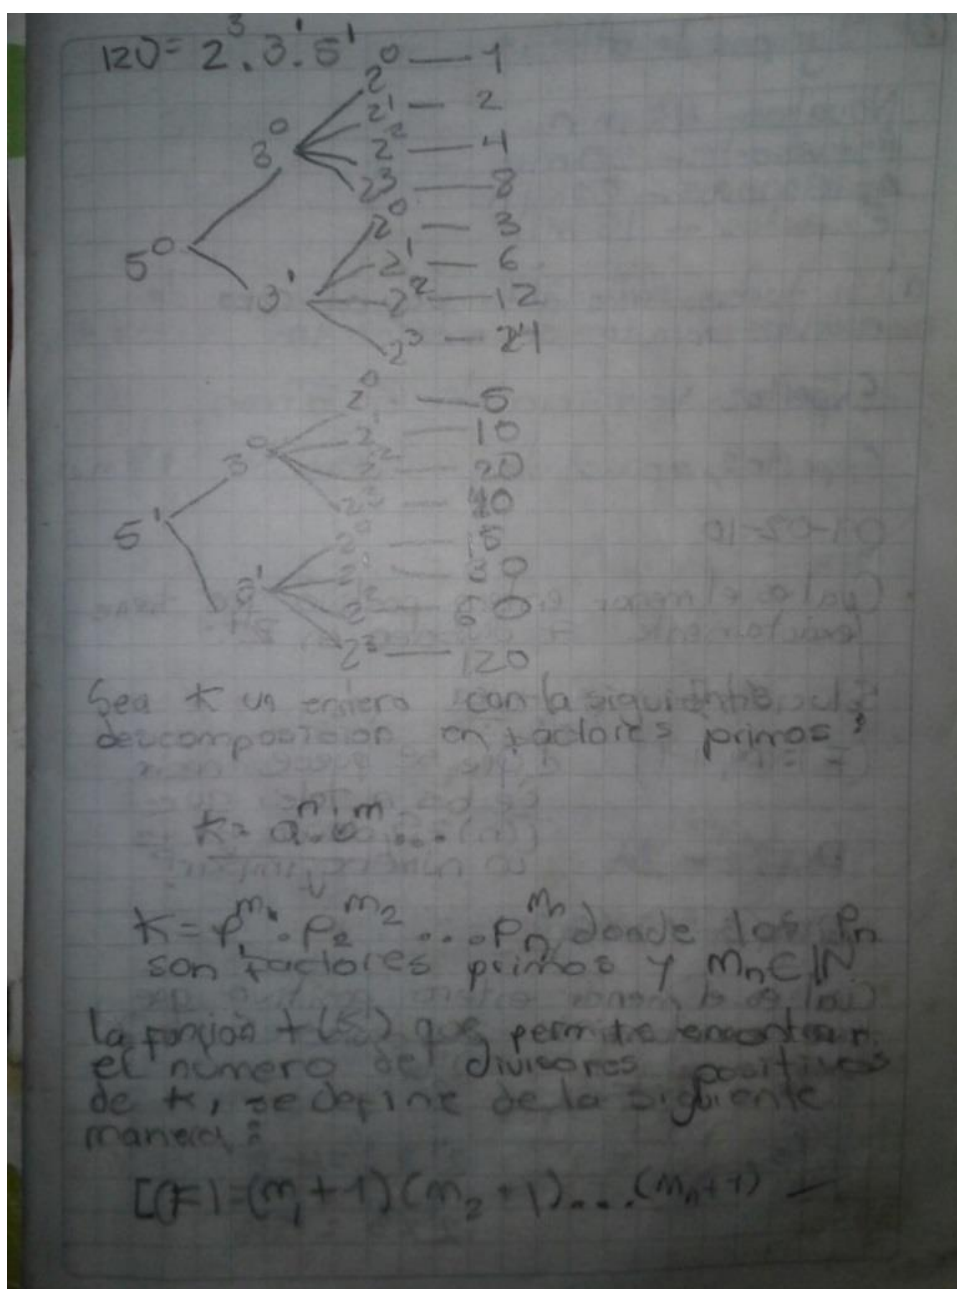 120 = 2³ . 3¹ . 5¹
2⁰ — 1
2¹ — 2
3⁰ 2² — 4
2³ — 8
2⁰ — 3
5⁰ 2¹ — 6
3¹ 2² — 12
2³ — 24
2⁰ — 5
2¹ — 10
3⁰ 2² — 20
2³ — 40
5¹ 2⁰ — 15
— 0
2² — 60
2³ — 120
Sea K un entero con la siguiente
descomposicion en factores primos:
K = aⁿ . b^m ...
K = p^m₁ . p₂^m₂ ... . pₙ^mₙ, donde los pₙ
son factores primos y mₙ ∈ IN
La función que permite encontrar
el numero de divisores positivos
de K, se define de la siguiente
manera:
[(K) = (m₁ + 1)(m₂ + 1) ... (mₙ + 1) —